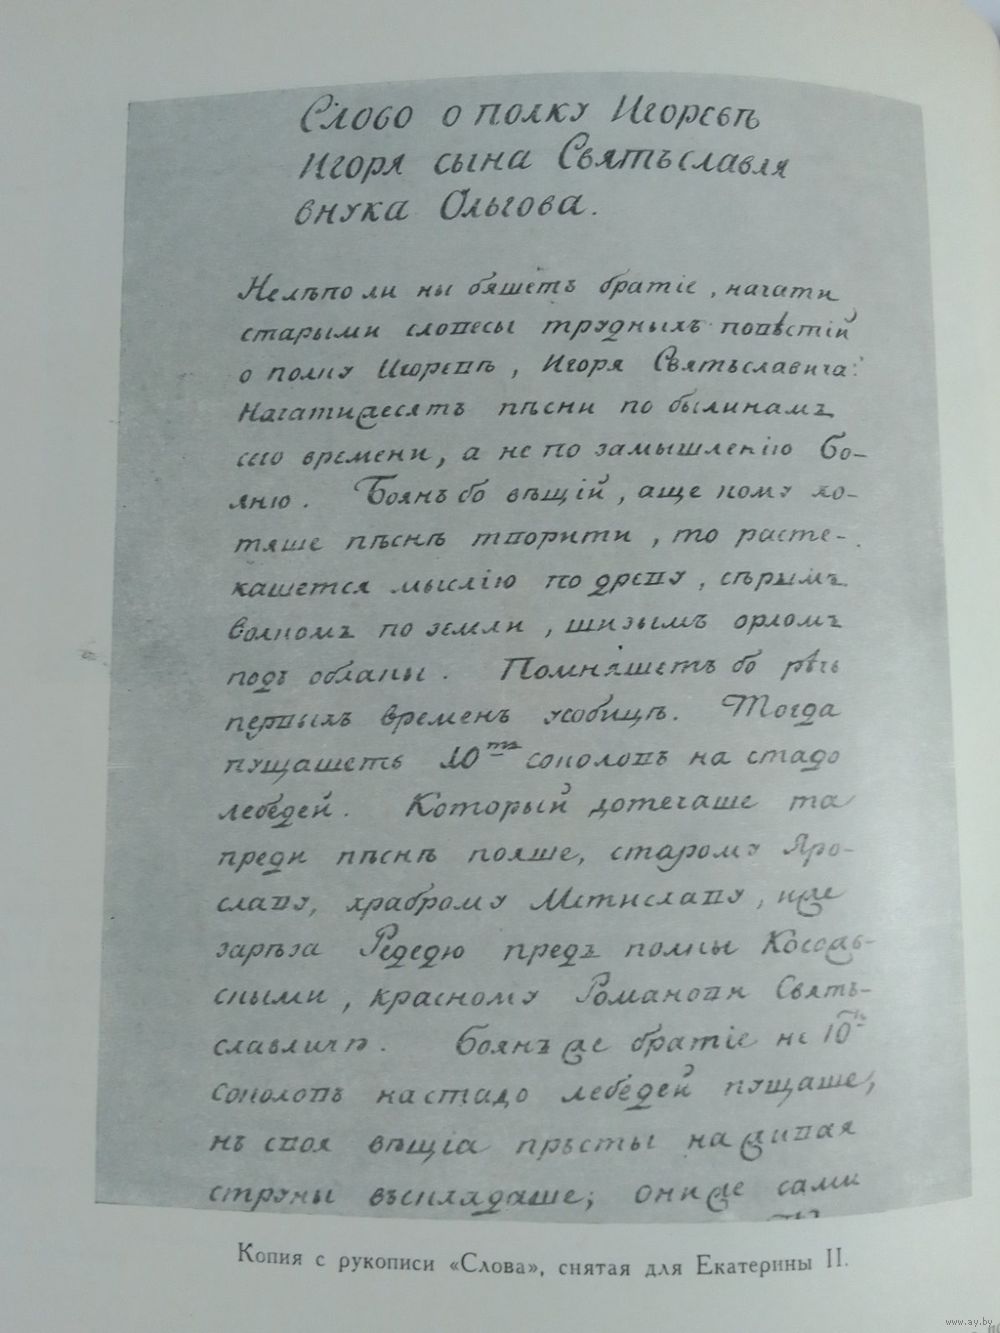 Слово о полку Игоревѣ
Игоря сына Святъславля
внука Ольгова.
Нелѣпо ли ны бяшетъ братіе, начати
старыми словесы трудныхъ повѣстій
о полку Игоревѣ, Игоря Святъславича!
Начатижесятъ пѣсни по былинамъ
сего времени, а не по замышленію Бо-
яню. Боянъ бо вѣщій, аще кому хо-
тяше пѣснь творити, то расте-
кашется мыслію по древу, сѣрымъ
волкомъ по земли, шизымъ орломъ
подъ облакы. Помняшетъ бо рѣчь
первыхъ временъ усобицѣ. Тогда
пущашеть 10ть соколовъ на стадо
лебедей. Который дотечаше та
преди пѣснь пояше, старому Яро-
славу, храброму Мстиславу, иже
зарѣза Редедю предъ полкы Косож-
скыми, красному Романови Святъ-
славличю. Боянъ же братіе не 10ть
соколовъ настадо лебедей пущаше,
нъ своя вѣщіа пръсты на живая
струны въскладаше; ониже сами
Копия с рукописи «Слова», снятая для Екатерины II.
www.ay.by